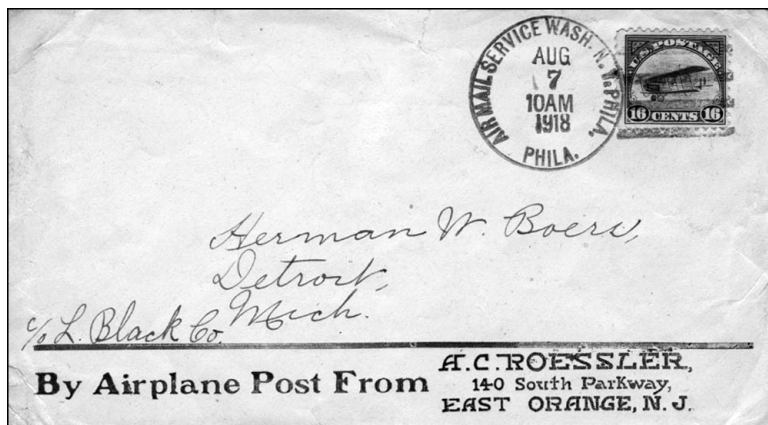 AIR MAIL SERVICE WASH. N.Y. PHILA.
AUG
7
10AM
1918
PHILA.
U.S. POSTAGE
16 CENTS 16
Herman W. Boers,
Detroit,
Mich.
c/o L. Black Co.
By Airplane Post From
A.C. ROESSLER,
140 South Parkway,
EAST ORANGE, N. J.